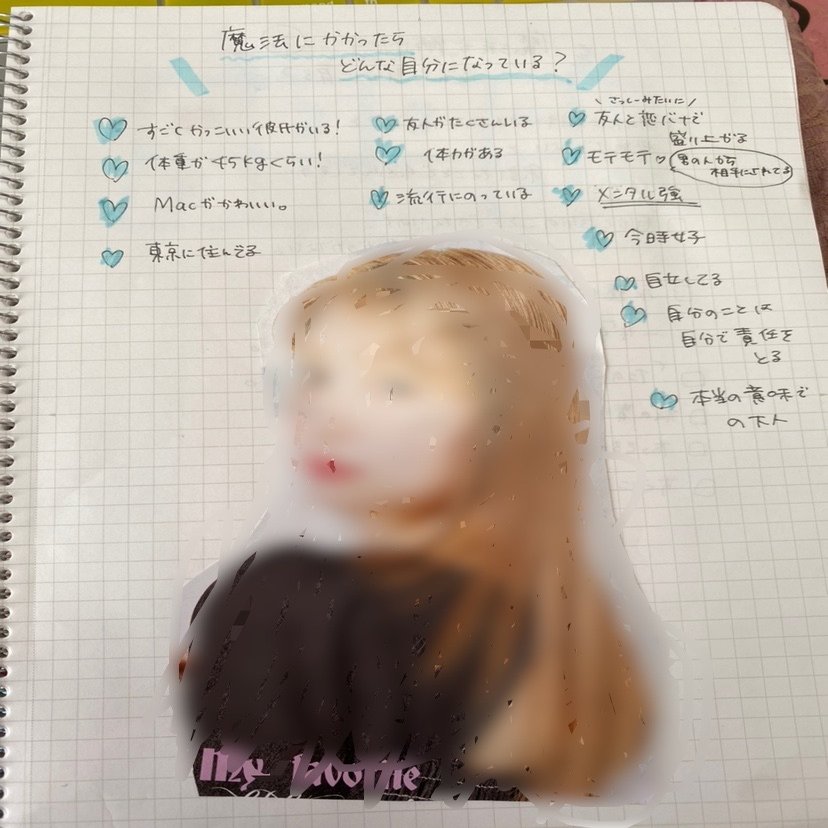 魔法にかかったら
どんな自分になっている?
すごくかっこいい彼氏がいる!
体重が45kgくらい!
Macがかわいい。
東京に住んでる
友人がたくさんいる
体力がある
流行にのっている
\ さっしーみたいに /
友人と恋バナで
盛り上がる
モテモテ♡ 男の人から
相手にされてる
メンタル強
今時女子
自立してる
自分のことは
自分で責任を
とる
本当の意味で
の大人
My favorite